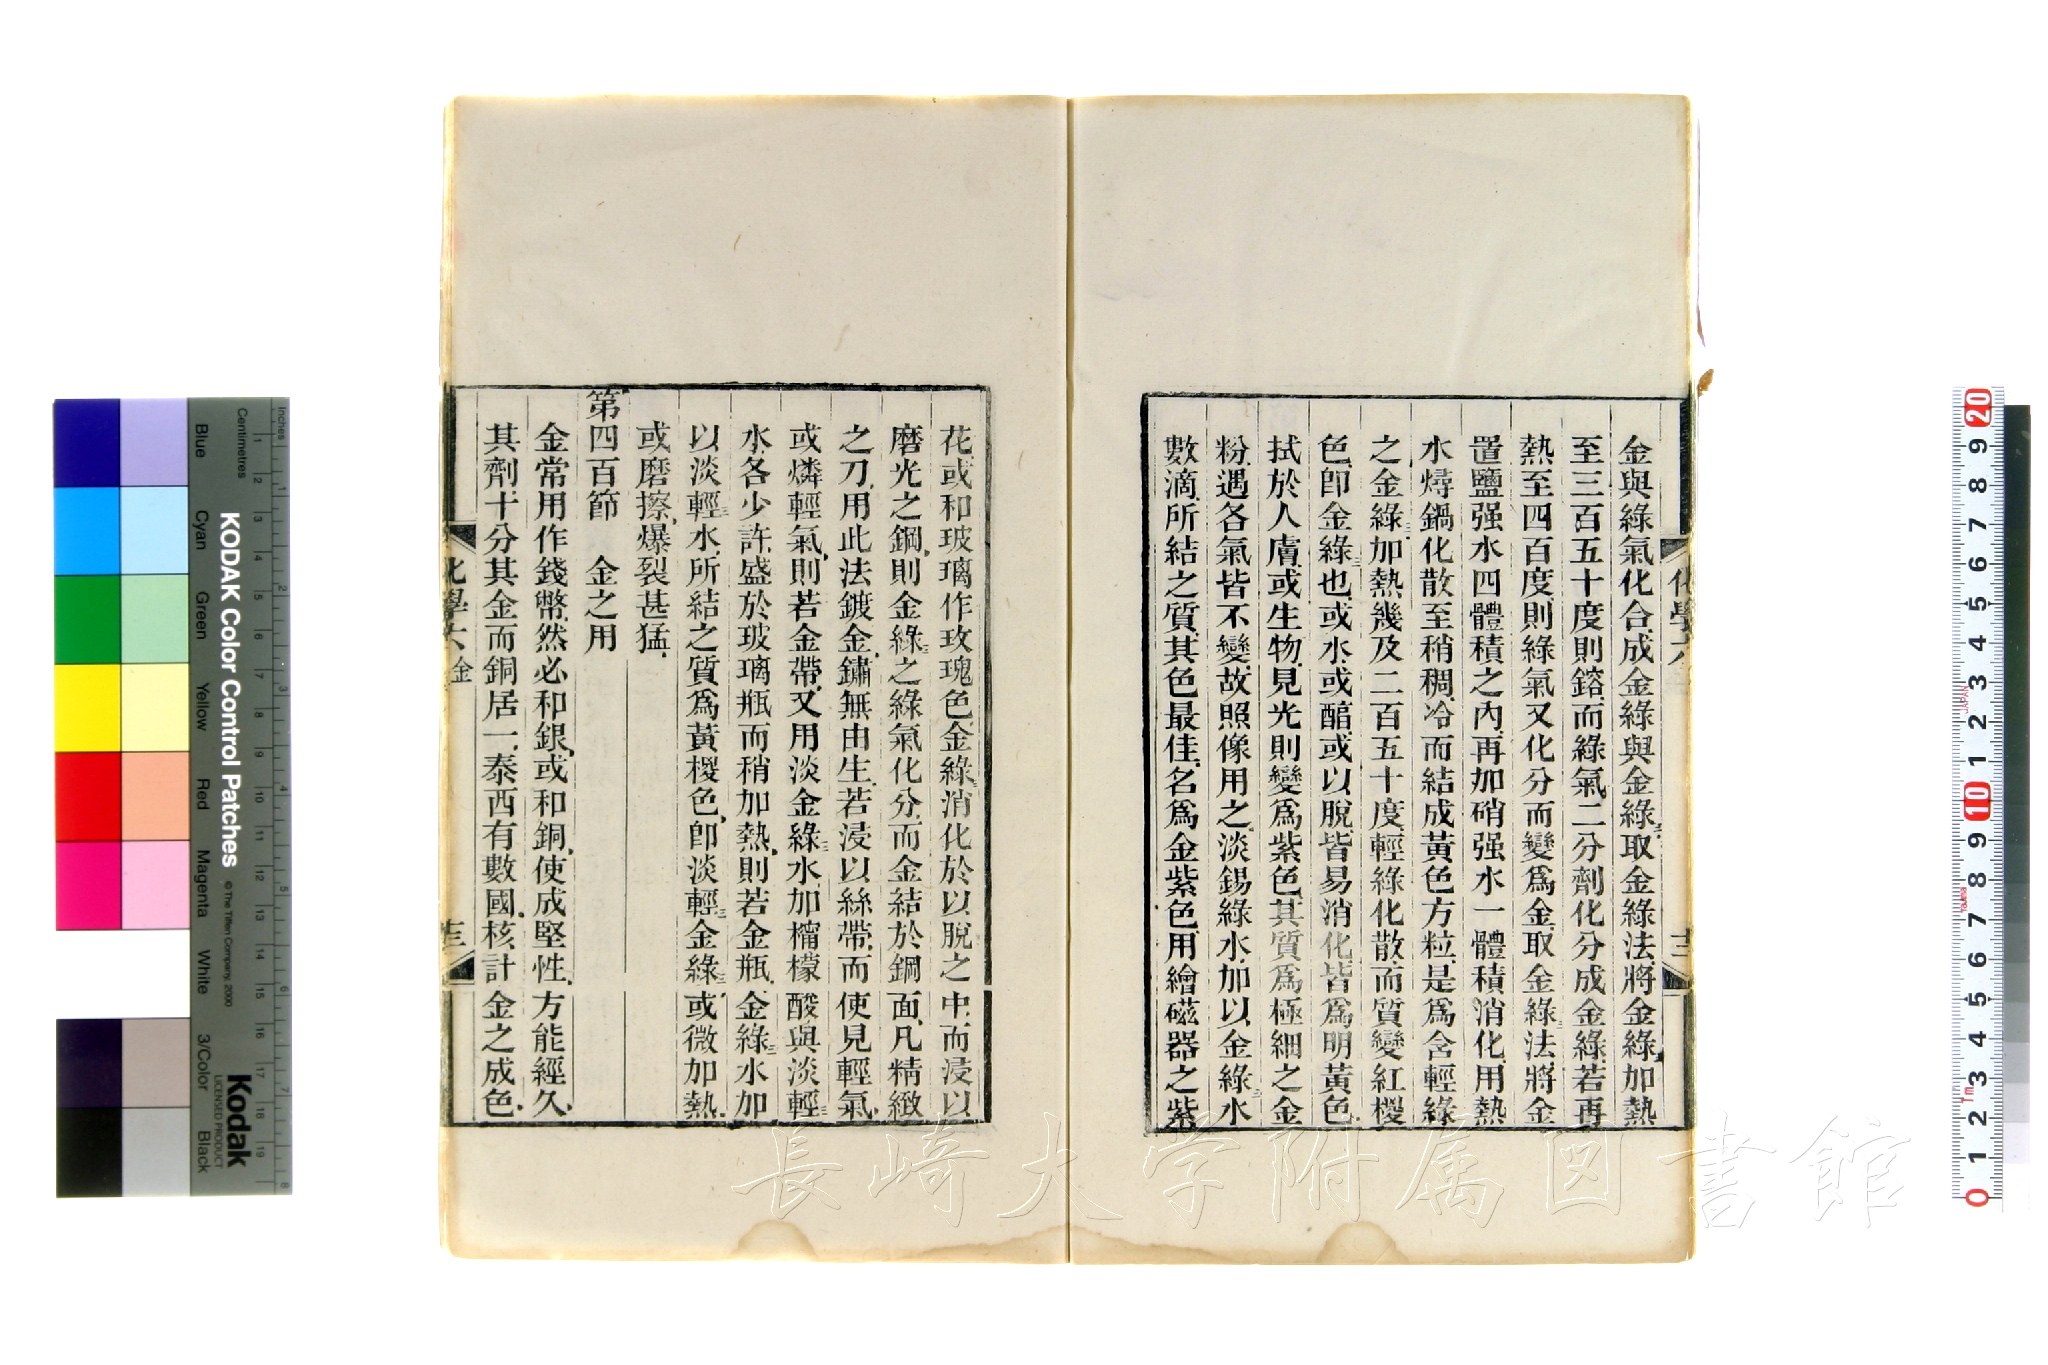 金與綠氣化合成金綠與金綠三取金綠法將金綠三加熱
至三百五十度則鎔而綠氣二分劑化分成金綠若再
熱至四百度則綠氣又化分而變爲金取金綠三法將金
置鹽强水四體積之內再加硝强水一體積消化用熱
水燖鍋化散至稍稠冷而結成黃色方粒是爲含輕綠
之金綠三加熱幾及二百五十度輕綠化散而質變紅椶
色卽金綠三也或水或醕或以脫皆易消化皆爲明黃色
拭於人膚或生物見光則變爲紫色其質爲極細之金
粉遇各氣皆不變故照像用之淡錫綠水加以金綠三水
數滴所結之質其色最佳名爲金紫色用繪磁器之紫
化學六
十二
花或和玻璃作玫瑰色金綠三消化於以脫之中而浸以
磨光之鋼則金綠三之綠氣化分而金結於鋼面凡精緻
之刀用此法鍍金鏽無由生若浸以絲帶而使見輕氣
或燐輕氣則若金帶又用淡金綠三水加檸檬酸與淡輕三
水各少許盛於玻璃瓶而稍加熱則若金瓶金綠三水加
以淡輕三水所結之質爲黃椶色卽淡輕三金綠三或微加熱
或磨擦爆裂甚猛
第四百節　金之用
金常用作錢幣然必和銀或和銅使成堅性方能經久
其劑十分其金而銅居一泰西有數國核計金之成色
化學六 金
十三
KODAK Color Control Patches
© The Tiffen Company, 2000
Kodak
LICENSED PRODUCT
Inches
Centimetres
Blue
Cyan
Green
Yellow
Red
Magenta
White
3/Color
Black
JAPAN
長崎大学附属図書館